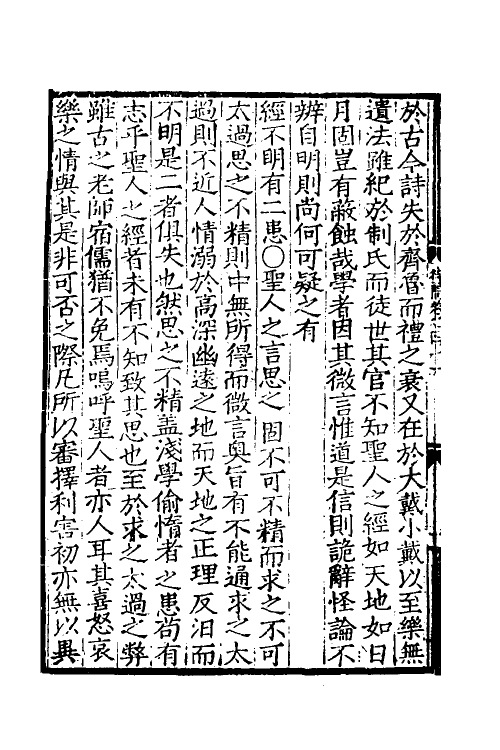 於古今詩失於齊魯而禮之衰又在於大戴小戴以至樂無
遺法雖紀於制氏而徒世其官不知聖人之經如天地如日
月固豈有蔽蝕哉學者因其微言惟道是信則詭辭怪論不
辨自明則尚何可疑之有
經不明有二患○聖人之言思之固不可不精而求之不可
太過思之不精則中無所得而微言奥旨有不能通求之太
過則不近人情溺於高深幽遠之地而天地之正理反汨而
不明是二者俱失也然思之不精蓋淺學偷惰者之患苟有
志乎聖人之經者未有不知致其思也至於求之太過之弊
雖古之老師宿儒猶不免焉嗚呼聖人者亦人耳其喜怒哀
樂之情與其是非可否之際凡所以審擇利害初亦無以異